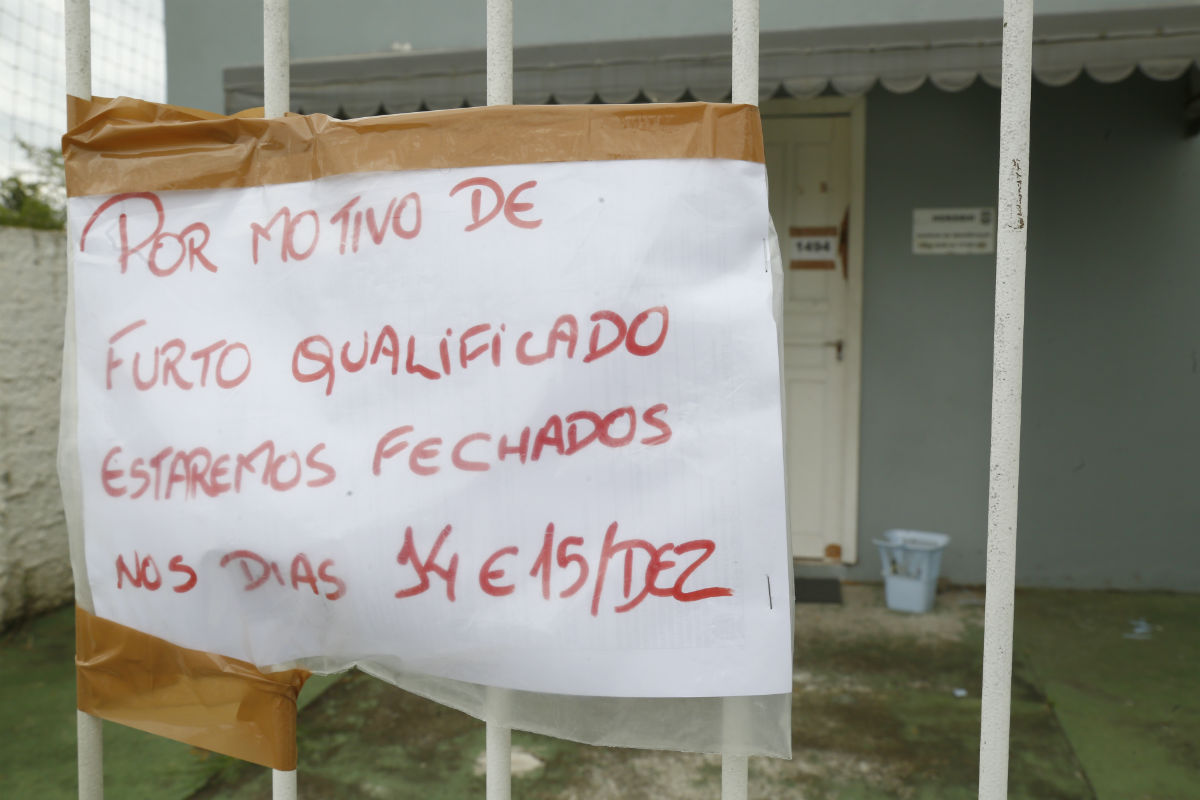 POR MOTIVO DE
FURTO QUALIFICADO
ESTAREMOS FECHADOS
NOS DIAS 14 E 15/DEZ
1494